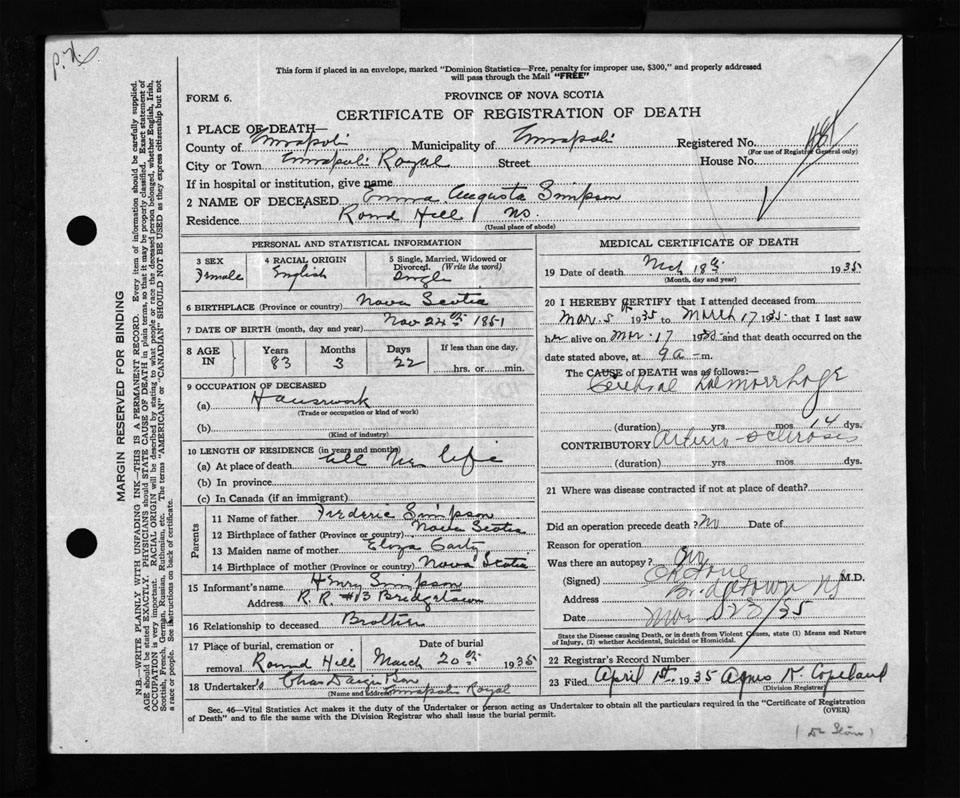 P.N.
This form if placed in an envelope, marked "Dominion Statistics—Free, penalty for improper use, $300," and properly addressed
will pass through the Mail "FREE"
FORM 6.
PROVINCE OF NOVA SCOTIA
CERTIFICATE OF REGISTRATION OF DEATH
1 PLACE OF DEATH—
County of Annapolis Municipality of Annapolis Registered No.
(For use of Registrar General only)
City or Town Annapolis Royal Street House No.
If in hospital or institution, give name
2 NAME OF DECEASED Emma Augusta Simpson
Residence Round Hill NS.
(Usual place of abode)
PERSONAL AND STATISTICAL INFORMATION
3 SEX Female
4 RACIAL ORIGIN English
5 Single, Married, Widowed or Divorced. (Write the word) Single
6 BIRTHPLACE (Province or country) Nova Scotia
7 DATE OF BIRTH (month, day and year) Nov 24th 1851
8 AGE IN Years 83 Months 3 Days 22 If less than one day, hrs. or min.
9 OCCUPATION OF DECEASED
(a) Housework
(Trade or occupation or kind of work)
(b)
(Kind of industry)
10 LENGTH OF RESIDENCE (in years and months)
(a) At place of death all her life
(b) In province
(c) In Canada (if an immigrant)
Parents
11 Name of father Frederic Simpson
12 Birthplace of father (Province or country) Nova Scotia
13 Maiden name of mother Eliza
14 Birthplace of mother (Province or country) Nova Scotia
15 Informant's name Henry Simpson
Address R.R. #3 Bridgetown
16 Relationship to deceased Brother
17 Place of burial, cremation or removal Round Hill
Date of burial March 20th 1935
18 Undertaker's
(Name and address) Annapolis Royal
MEDICAL CERTIFICATE OF DEATH
19 Date of death Mch 18th 1935
(Month, day and year)
20 I HEREBY CERTIFY that I attended deceased from
Mar. 5 1935 to March 17 1935 that I last saw
her alive on Mar. 17 1935 and that death occurred on the
date stated above, at 9 a-m.
The CAUSE of DEATH was as follows:—
Cerebral haemorrhage
(duration) yrs. mos. 14 dys.
CONTRIBUTORY Arterio-sclerosis
(duration) yrs. mos. dys.
21 Where was disease contracted if not at place of death?
Did an operation precede death? No Date of
Reason for operation
Was there an autopsy? No
(Signed) M.D.
Address Bridgetown NS
Date Mar 23/35
State the Disease causing Death, or in death from Violent Causes, state (1) Means and Nature
of Injury, (2) whether Accidental, Suicidal or Homicidal.
22 Registrar's Record Number
23 Filed April 1st 1935 Agnes N. Copeland
(Division Registrar)
Sec. 46—Vital Statistics Act makes it the duty of the Undertaker or person acting as Undertaker to obtain all the particulars required in the "Certificate of Registration
of Death" and to file the same with the Division Registrar who shall issue the burial permit.
(OVER)
MARGIN RESERVED FOR BINDING
N.B.—WRITE PLAINLY WITH UNFADING INK—THIS IS A PERMANENT RECORD. Every item of information should be carefully supplied.
AGE should be stated EXACTLY. PHYSICIANS should STATE CAUSE OF DEATH in plain terms, so that it may be properly classified. Exact statement of
OCCUPATION is very important. RACIAL ORIGIN will be described by stating to what people or race the deceased person belonged, whether English, Irish,
Scottish, French, German, Russian, Ruthenian, etc. The terms "AMERICAN" or "CANADIAN" SHOULD NOT BE USED as they express citizenship but not
a race or people. See instructions on back of certificate.